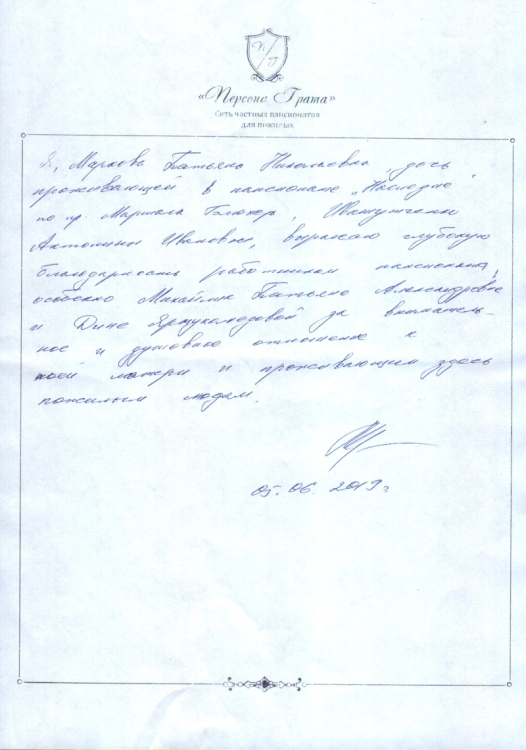 П Г
«Персона Грата»
Сеть частных пансионатов
для пожилых
Я, Маркова Татьяна Николаевна, дочь
проживающей в пансионате „Наследие"
по пр. Маршала Блюхера,
Антонины Ивановны, выражаю глубокую
благодарность работникам пансионата,
особенно Татьяне Александровне
и Дине за вниматель-
ное и душевное отношение к
моей матери и проживающим здесь
пожилым людям.
05.06.2019г